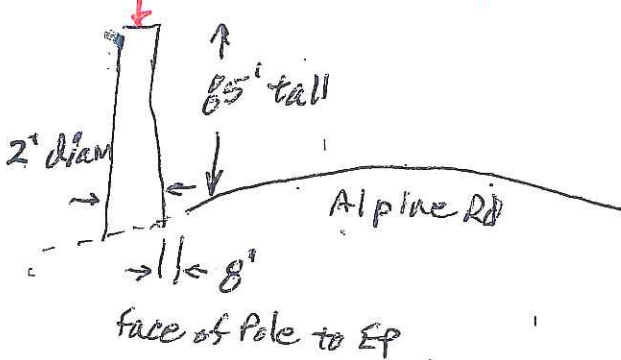 tall
2' diam
Alpine Rd
8'
face of Pole to EP